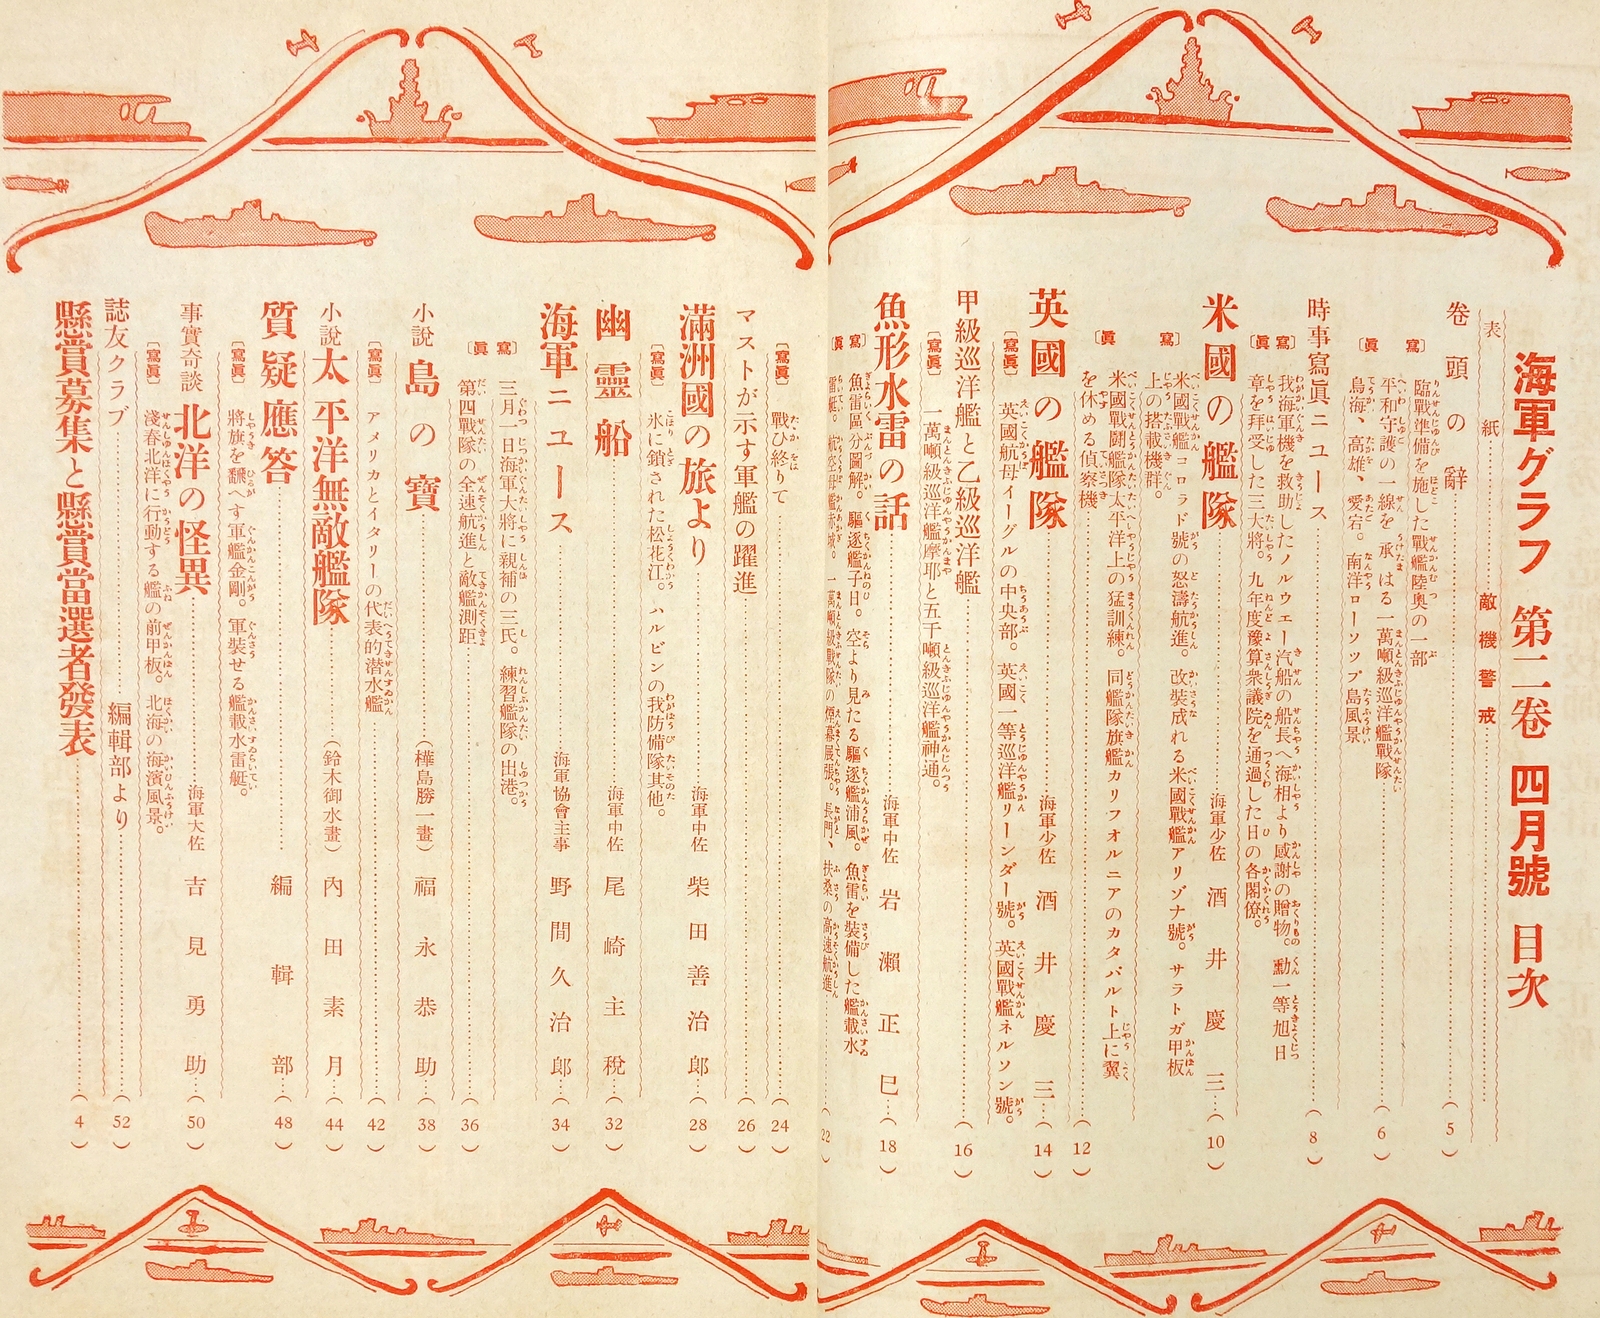 海軍グラフ 第二卷 四月號 目次
表紙……敵機警戒
卷頭の辭……(5)
〔寫眞〕
臨戰準備を施した戰艦陸奧の一部
平和守護の一線を承はる一萬噸級巡洋艦戰隊……(6)
鳥海、高雄、愛宕。南洋ローソップ島風景
時事寫眞ニュース……(8)
〔寫眞〕
我海軍機を救助したノルウエー汽船の船長へ海相より感謝の贈物。勳一等旭日
章を拜受した三大將。九年度豫算衆議院を通過した日の各閣僚。
米國の艦隊……海軍少佐 酒井慶三…(10)
〔寫眞〕
米國戰艦コロラド號の怒濤航進。改裝成れる米國戰艦アリゾナ號。サラトガ甲板
上の搭載機群。
〔寫眞〕
米國戰鬪艦隊太平洋上の猛訓練。同艦隊旗艦カリフオルニアのカタパルト上に翼
を休める偵察機……(12)
英國の艦隊……海軍少佐 酒井慶三…(14)
〔寫眞〕
英國航母イーグルの中央部。英國一等巡洋艦リーンダー號。英國戰艦ネルソン號。
甲級巡洋艦と乙級巡洋艦……(16)
〔寫眞〕
一萬噸級巡洋艦摩耶と五千噸級巡洋艦神通。
魚形水雷の話……海軍中佐 岩瀬正巳…(18)
〔寫眞〕
魚雷區分圖解。驅逐艦子日。空より見たる驅逐艦浦風。魚雷を裝備した艦載水
雷艇。航空母艦赤城。一萬噸級戰隊の煙幕展張。長門、扶桑の高速航進……(22)
〔寫眞〕
戰ひ終りて……(24)
マストが示す軍艦の躍進……(26)
滿洲國の旅より……海軍中佐 柴田善治郎…(28)
〔寫眞〕
氷に鎖された松花江。ハルビンの我防備隊其他。
幽靈船……海軍中佐 尾崎主税…(32)
海軍ニュース……海軍協會主事 野間久治郎…(34)
〔寫眞〕
三月一日海軍大將に親補の三氏。練習艦隊の出港。
第四戰隊の全速航進と敵艦測距……(36)
小説 島の寶……(樺島勝一畫) 福永恭助…(38)
〔寫眞〕
アメリカとイタリーの代表的潜水艦……(42)
小説 太平洋無敵艦隊……(鈴木御水畫) 内田素月…(44)
質疑應答……編輯部…(48)
〔寫眞〕
將旗を飜へす軍艦金剛。軍裝せる艦載水雷艇。
事實奇談 北洋の怪異……海軍大佐 吉見勇助…(50)
〔寫眞〕
淺春北洋に行動する艦の前甲板。北海の海濱風景。
誌友クラブ……編輯部より……(52)
懸賞募集と懸賞當選者發表……(4)